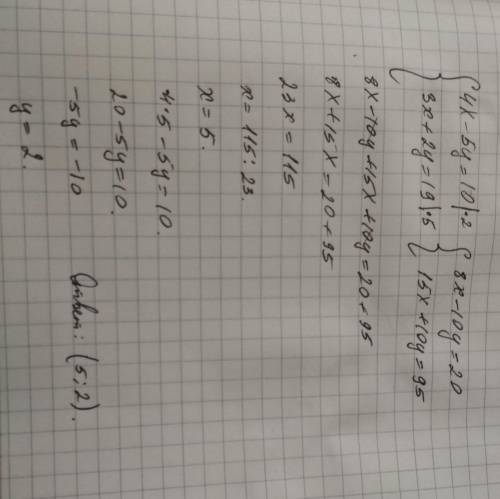 {4x-5y=10|·2 {8x-10y=20
{3x+2y=19|·5 {15x+10y=95
8x-10y+15x+10y=20+95
8x+15x=20+95
23x=115
x=115:23.
x=5.
4·5-5y=10.
20-5y=10.
-5y=-10
y=2. Ответ: (5;2).